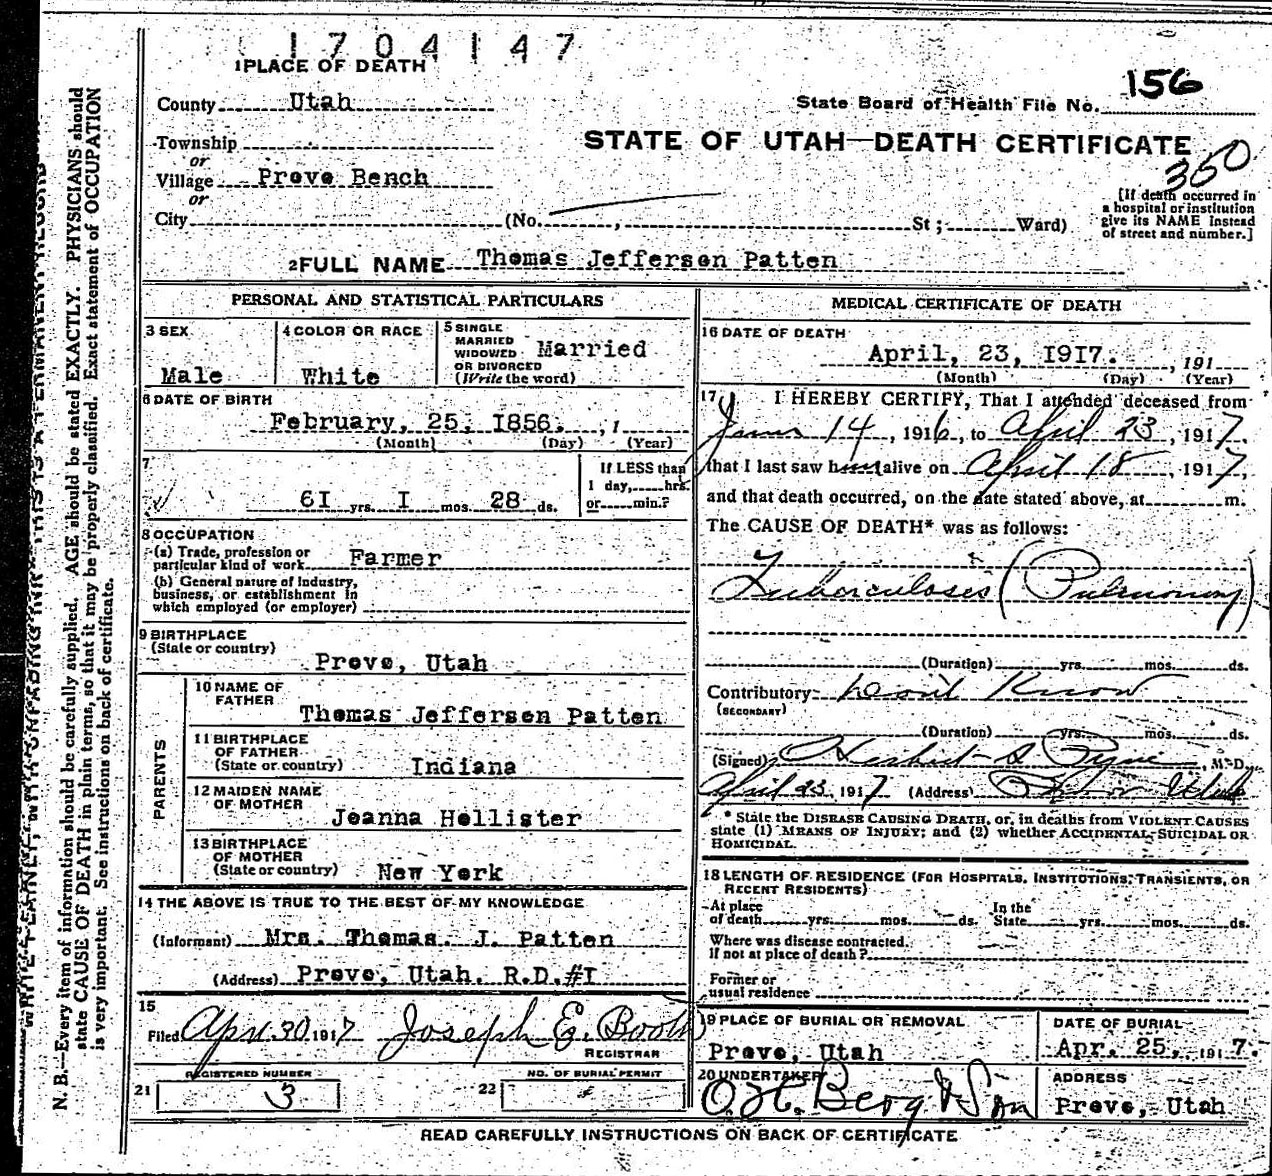 1704147
1 PLACE OF DEATH
County Utah
State Board of Health File No. 156
Township
STATE OF UTAH—DEATH CERTIFICATE
or
350
Village Provo Bench
or
City (No. , St ; Ward)
[If death occurred in
a hospital or institution
give its NAME instead
of street and number.]
2 FULL NAME Thomas Jefferson Patten
PERSONAL AND STATISTICAL PARTICULARS
3 SEX
Male
4 COLOR OR RACE
White
5 SINGLE
MARRIED
WIDOWED
OR DIVORCED
(Write the word)
Married
6 DATE OF BIRTH
February, 25, 1856. , 1
(Month) (Day) (Year)
7
61 yrs. 1 mos. 28 ds.
If LESS than
1 day, hrs.
or min.?
8 OCCUPATION
(a) Trade, profession or
particular kind of work Farmer
(b) General nature of industry,
business, or establishment in
which employed (or employer)
9 BIRTHPLACE
(State or country)
Provo, Utah
PARENTS
10 NAME OF
FATHER
Thomas Jefferson Patten
11 BIRTHPLACE
OF FATHER
(State or country) Indiana
12 MAIDEN NAME
OF MOTHER
Joanna Hollister
13 BIRTHPLACE
OF MOTHER
(State or country) New York
14 THE ABOVE IS TRUE TO THE BEST OF MY KNOWLEDGE
(Informant) Mrs. Thomas. J. Patten
(Address) Provo, Utah. R.D.#1
15
Filed Apr. 30 1917 Joseph E. Booth
REGISTRAR
REGISTERED NUMBER
21 3
NO. OF BURIAL PERMIT
22
MEDICAL CERTIFICATE OF DEATH
16 DATE OF DEATH
April, 23, 1917. , 191
(Month) (Day) (Year)
17 I HEREBY CERTIFY, That I attended deceased from
June 14, 1916, to April 23, 1917,
that I last saw him alive on April 18, 1917,
and that death occurred, on the date stated above, at m.
The CAUSE OF DEATH* was as follows:
Tuberculosis (Pulmonary)
(Duration) yrs. mos. ds.
Contributory Don't Know
(SECONDARY)
(Duration) yrs. mos. ds.
(Signed) Herbert S Pyne, M.D.
April 23, 1917 (Address) Utah
* State the DISEASE CAUSING DEATH, or, in deaths from VIOLENT CAUSES
state (1) MEANS OF INJURY; and (2) whether ACCIDENTAL, SUICIDAL OR
HOMICIDAL.
18 LENGTH OF RESIDENCE (FOR HOSPITALS, INSTITUTIONS, TRANSIENTS, OR
RECENT RESIDENTS)
At place
of death yrs. mos. ds.
In the
State yrs. mos. ds.
Where was disease contracted.
if not at place of death?
Former or
usual residence
19 PLACE OF BURIAL OR REMOVAL
Provo, Utah
DATE OF BURIAL
Apr. 25, 1917.
20 UNDERTAKER
O. H. Berg & Son
ADDRESS
Provo, Utah
READ CAREFULLY INSTRUCTIONS ON BACK OF CERTIFICATE
WRITE PLAINLY, WITH UNFADING INK—THIS IS A PERMANENT RECORD
N. B.—Every item of information should be carefully supplied. AGE should be stated EXACTLY. PHYSICIANS should
state CAUSE OF DEATH in plain terms, so that it may be properly classified. Exact statement of OCCUPATION
is very important. See instructions on back of certificate.